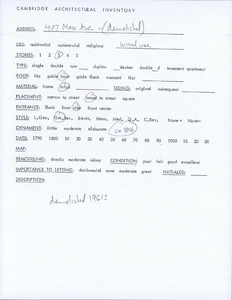 CAMBRIDGE ARCHITECTURAL INVENTORY
ADDRESS: 407 Mass Ave - (demolished)
USE: residential commercial religious
STORIES: 1 2 3 4 5
TYPE: single double row duplex decker double d tenement apartment
ROOF: hip gable front gable flank mansard flat
MATERIAL: frame brick SIDING: original subsequent
PLACEMENT: narrow to street broad to street square
ENTRANCE: flank front side front center
ORNAMENT: little moderate elaborate
DATE: 1790 1800 10 20 30 40 50 60 70 80 90 1900 10 20 30
MAP:
REMODELING: drastic moderate minor CONDITION: poor fair good excellent
IMPORTANCE TO SETTING: detrimental none moderate great INITIALED:
DESCRIPTION:
demolished 1961?